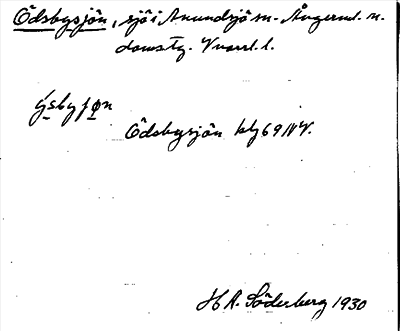 Ödsbysjön, sjö i Anundsjö sn. Ångerml. n.
domstg. V
Ysbyjøn
Ödsbysjön blg 69 NV.
H R. Söderberg 1930